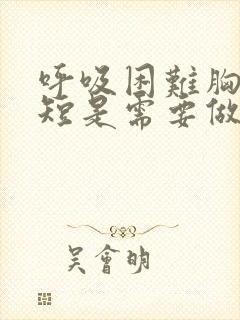 呼吸困難胸
短是需要做
吳會明